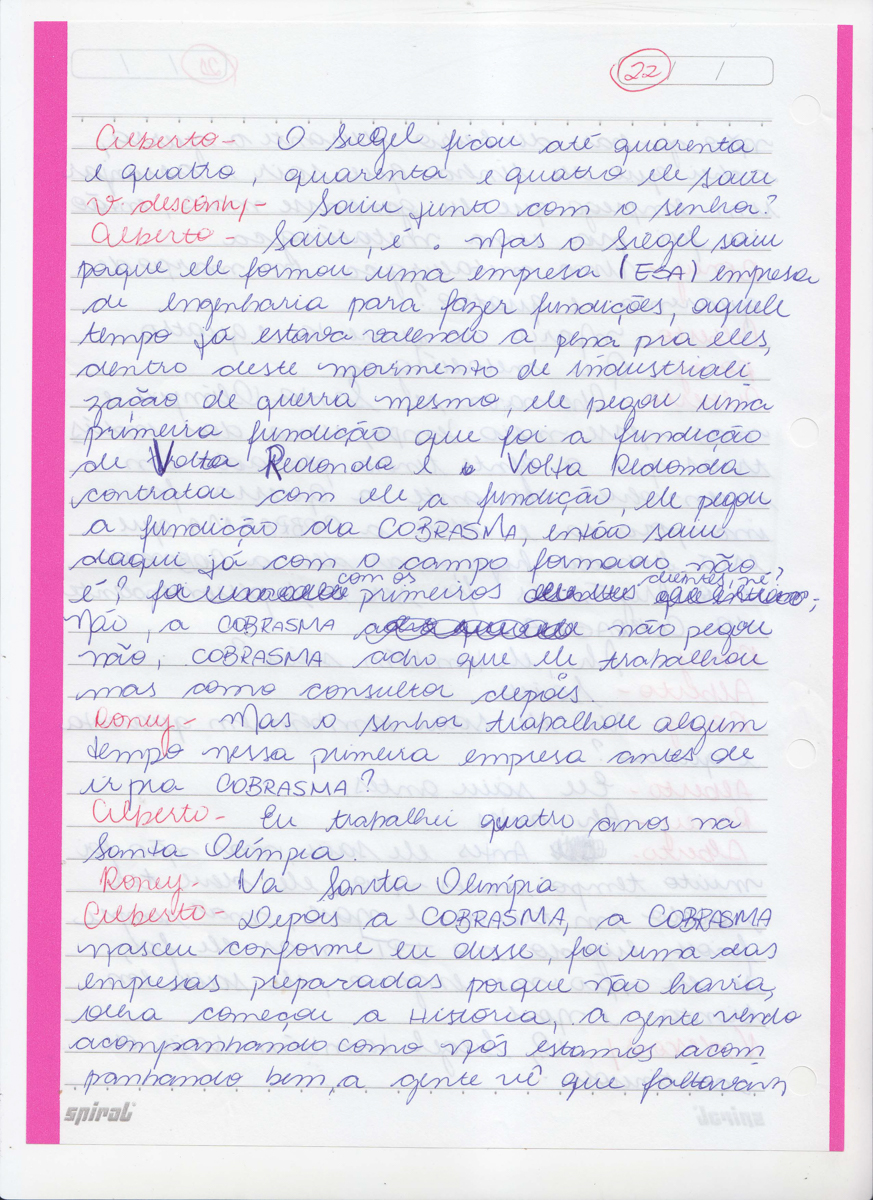 22 / /
Alberto - O Siegel ficou até quarenta
e quatro, quarenta e quatro ele saiu
V. desconhy - Saiu junto com o senhor?
Alberto - Saiu, é. Mas o Siegel saiu
porque ele formou uma empresa (ESA) empresa
de engenharia para fazer fundições, aquele
tempo já estava valendo a pena pra eles,
dentro deste movimento de industriali
zação de guerra mesmo, ele pegou uma
primeira fundição que foi a fundição
de Volta Redonda e Volta Redonda
contratou com ele a fundição, ele pegou
a fundição da COBRASMA, então saiu
daqui já com o campo formado, não
é? com os primeiros clientes, né?
Não, a COBRASMA não pegou
não, COBRASMA acho que ele trabalhou
mas como consultor depois.
Roney - Mas o senhor trabalhou algum
tempo nessa primeira empresa antes de
ir pra COBRASMA?
Alberto - Eu trabalhei quatro anos na
Santa Olímpia.
Roney - Na Santa Olímpia
Alberto - Depois a COBRASMA, a COBRASMA
nasceu conforme eu disse, foi uma das
empresas preparadas porque não havia,
olha começou a História, a gente vendo
acompanhando como nós estamos acom
panhando bem, a gente vê que faltavam
spiral